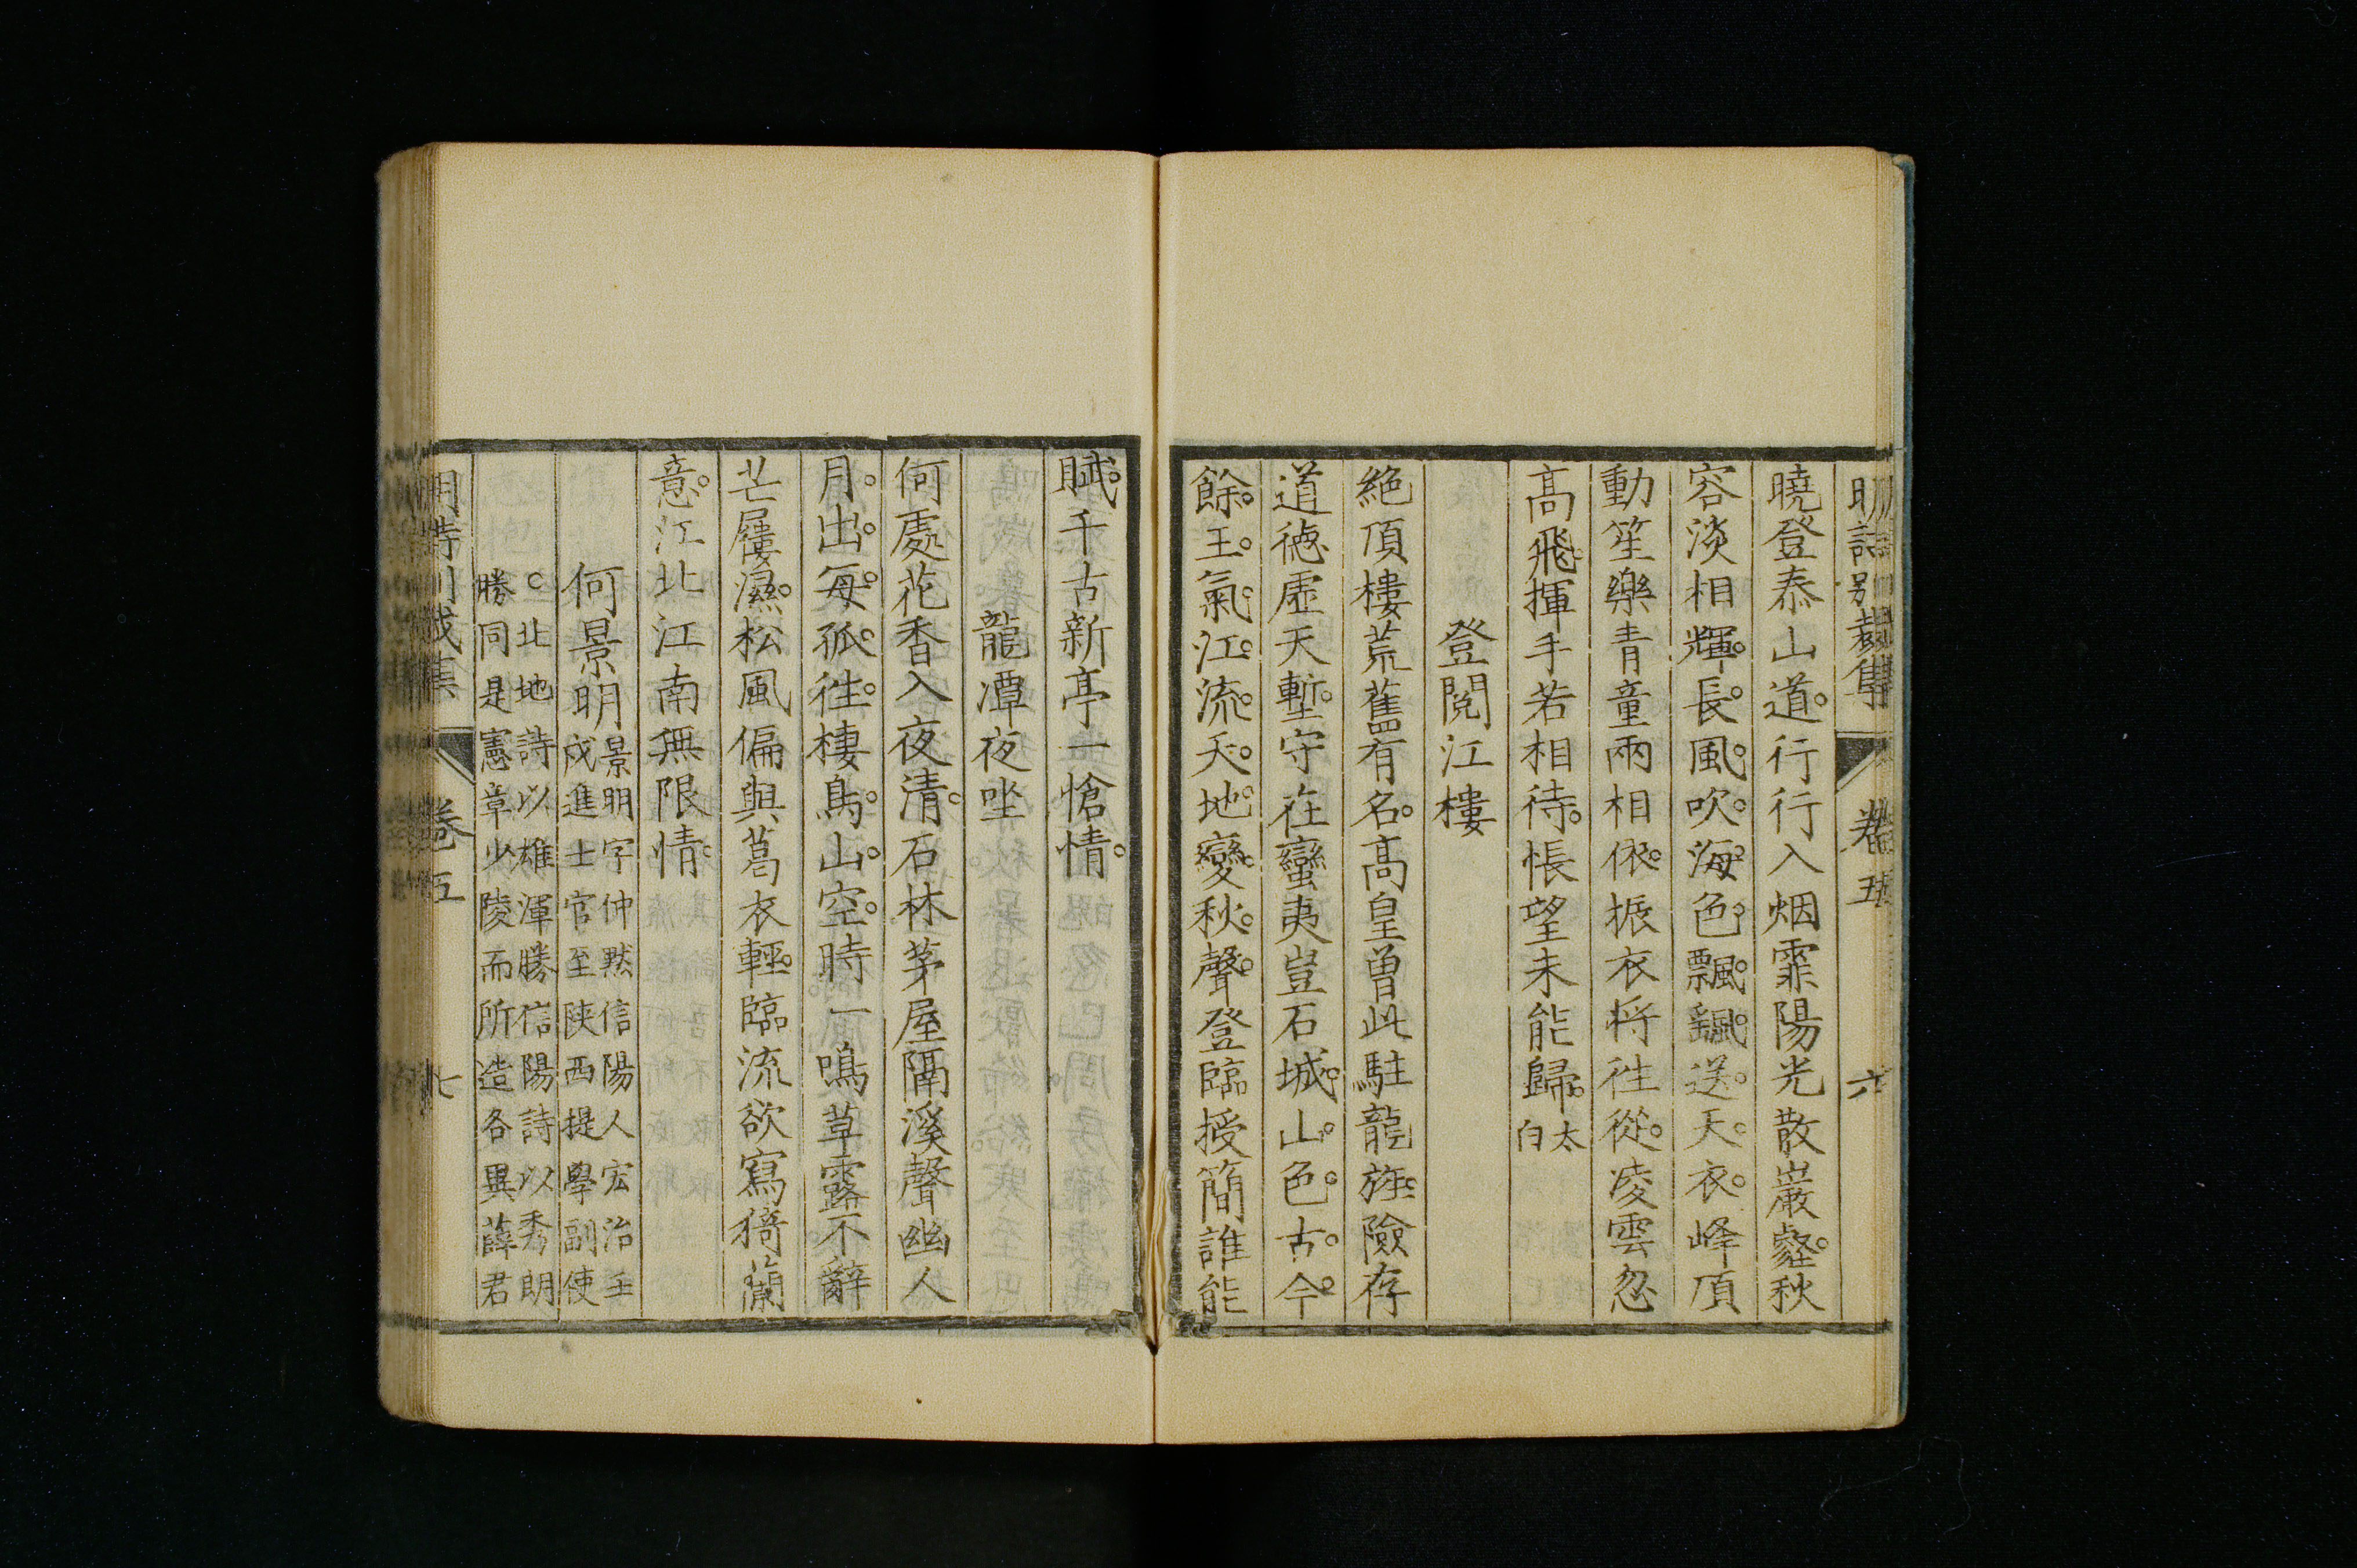 明詩別裁集 卷五 六
曉登泰山道。行行入烟霏陽光散巖壑。秋
容淡相輝。長。風。吹。海。色。飄。颻。送。天。衣。峰頂
動笙樂青童兩相依。振衣将往從。凌雲忽
高飛。揮手若相待。悵望未能歸。太白
登閱江樓
絶頂樓荒舊有名。高皇曾此駐龍旌。險存
道德虛天塹。守在蠻夷豈石城。山。色。古。今。
餘。王。氣。江。流。天。地。變。秋。聲。登臨授簡誰能
賦。千古新亭一愴情。
龍潭夜坐
何處花香入夜清。石林茅屋隔溪聲幽人
月。出。每。孤。往。棲鳥。山。空。時一鳴草露不辭
芒屨濕。松風偏與葛衣輕。臨流欲寫猗蘭
意。江北江南無限情。
何景明 景明字仲黙信陽人宏治壬
戌進士官至陜西提學副使
○北地詩以雄渾勝信陽詩以秀朗
勝同是憲章少陵而所造各異薛君
明詩別裁集 卷五 七